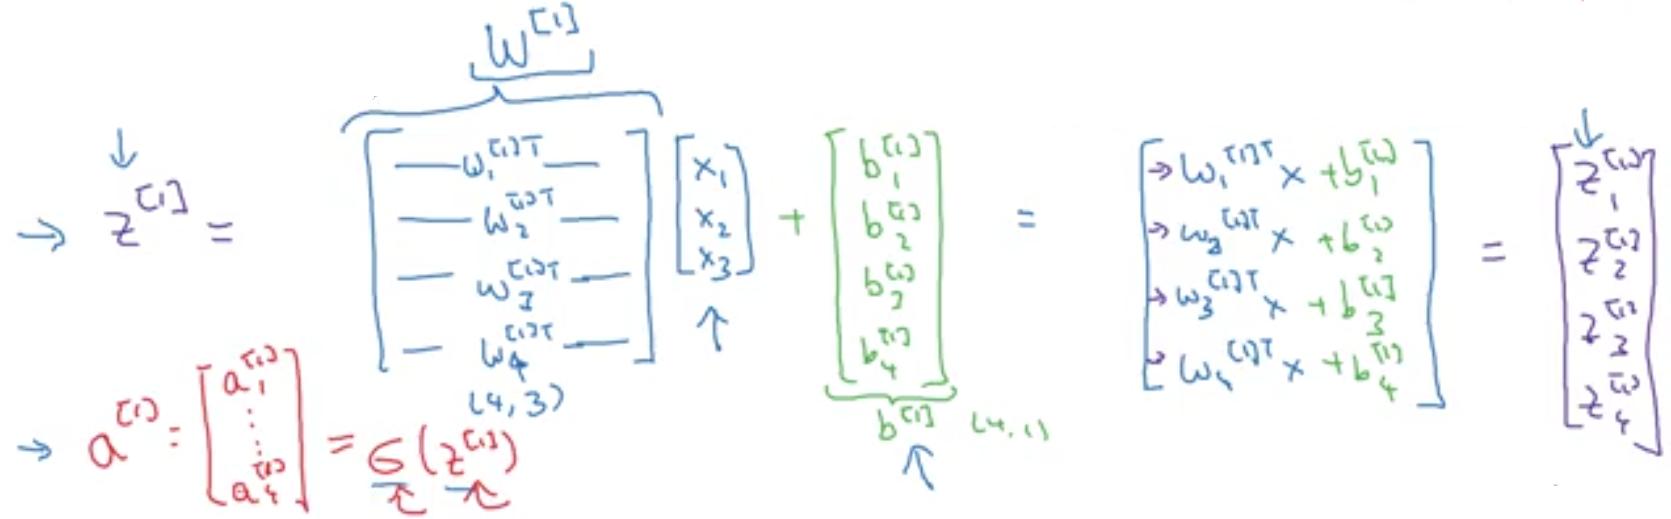 W^[1]
z^[1] = [ — w_1^[1]T — ; — w_2^[1]T — ; — w_3^[1]T — ; — w_4^[1]T — ] [ x_1 ; x_2 ; x_3 ] + [ b_1^[1] ; b_2^[1] ; b_3^[1] ; b_4^[1] ] = [ → w_1^[1]T x + b_1^[1] ; → w_2^[1]T x + b_2^[1] ; → w_3^[1]T x + b_3^[1] ; → w_4^[1]T x + b_4^[1] ] = [ z_1^[1] ; z_2^[1] ; z_3^[1] ; z_4^[1] ]
(4,3)
b^[1] (4,1)
→ a^[1] = [ a_1^[1] ; ⋮ ; a_4^[1] ] = σ(z^[1])